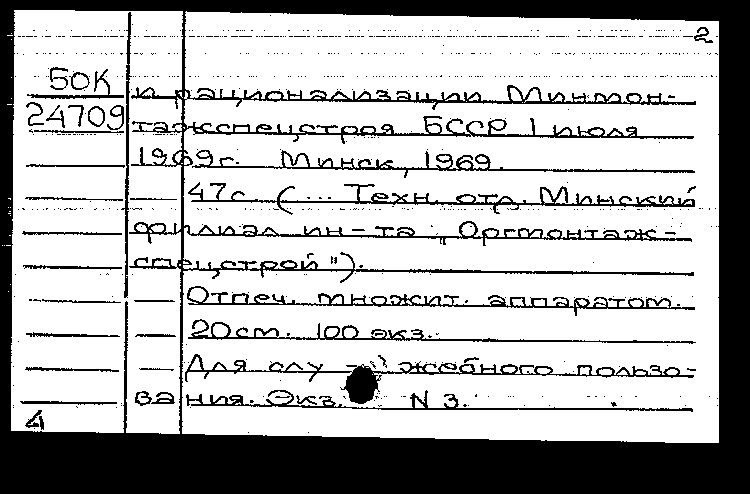 2
БОК
24709
и рационализации Минмон-
тажспецстроя БССР 1 июля
1969г. Минск, 1969.
47с (... Техн. отд. Минский
филиал ин-та „Оргмонтаж-
спецстрой").
Отпеч. множит. аппаратом.
20см. 100 экз.
Для слу - жебного пользо-
вания. Экз. N 3.
4